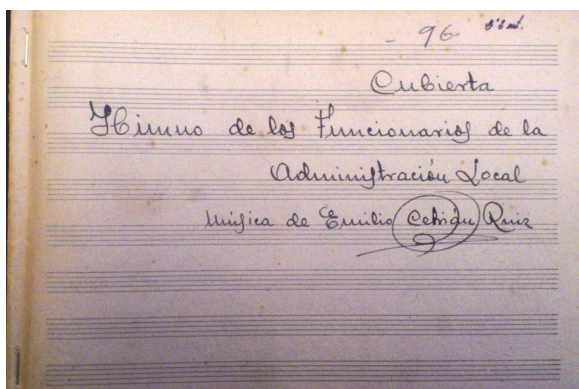 - 96
Cubierta
Himno de los Funcionarios de la
Administración Local
Música de Emilio Cebrián Ruiz